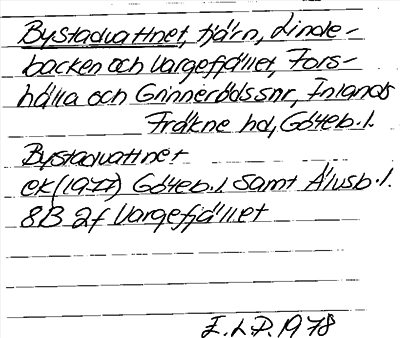 Bystadvattnet, tjärn, Linde-
backen och Vargefjället, Fors-
hälla och Grinneröds snr, Inlands
Fräkne hd, Göteb. l.
Bystadvattnet
EK (1977) Göteb. l. samt Älvsb. l.
8B 2f Vargefjället
E.L.P. 1978